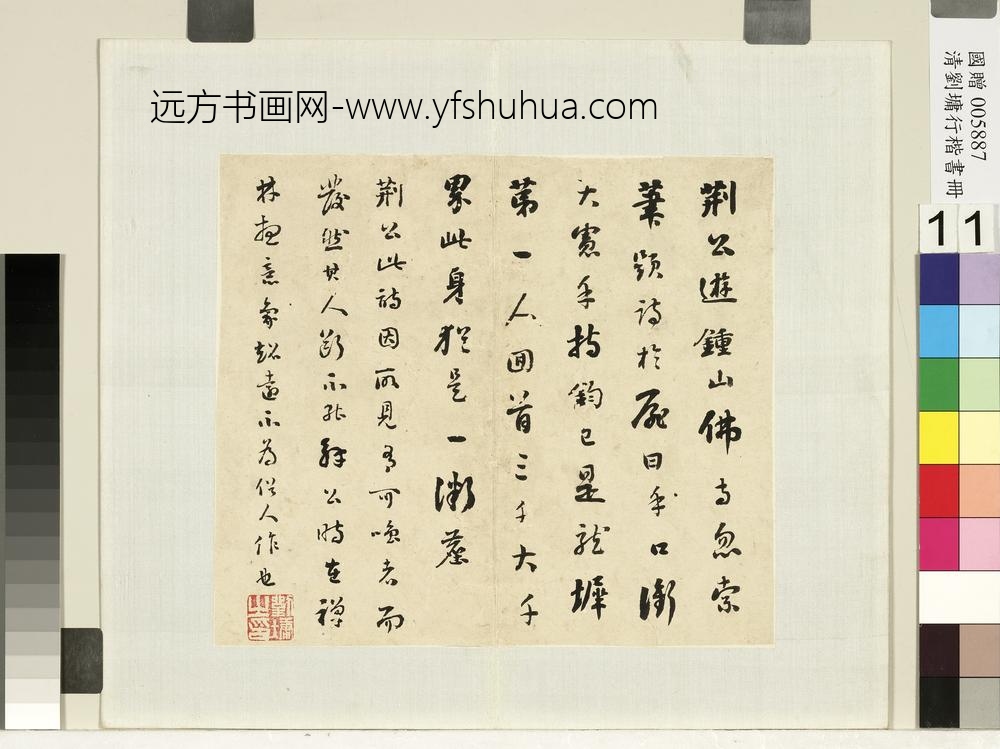 远方书画网-www.yfshuhua.com
國贈 005887
清劉墉行楷書冊
11
荊公遊鍾山佛寺忽索
筆題詩於屏曰手口衡
大憲手持鈞已是龍墀
第一人回首三千大千
界此身猶是一微塵
荊公此詩因所見有可喚者而
發然其人斷不能解公時在禪
林遊意象超遠不為俗人作也
劉墉之印